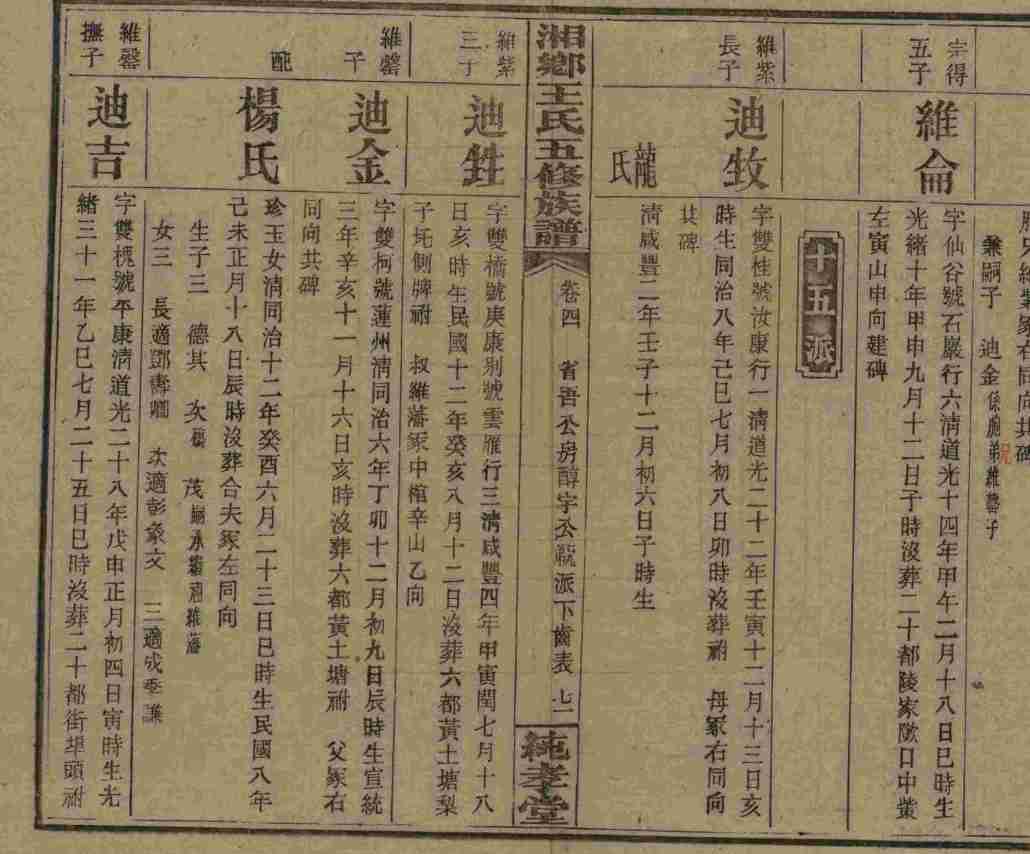 兼嗣子　迪金係胞弟維罄子
宗得
五子
維侖
字仙谷號石巖行六清道光十四年甲午二月十八日巳時生
光緒十年甲申九月十二日子時沒葬二十都陵家墩口中
左寅山申向建碑
十五派
維紫
長子
迪牧
字雙桂號汝康行一清道光二十二年壬寅十二月十三日亥
時生同治八年己巳七月初八日卯時沒葬祔　母冢右同向
共碑
龍氏
清咸豐二年壬子十二月初六日子時生
湘鄉王氏五修族譜
卷四　省吾公房醇字公派下齒表　七一
純孝堂
維紫
三子
迪甡
字雙橋號庚康別號雲雁行三清咸豐四年甲寅閏七月十八
日亥時生民國十二年癸亥八月十二日沒葬六都黃土塘梨
子坨側牌祔　叔維藩冢中棺辛山乙向
維罄
子
迪金
字雙柯號蓮州清同治六年丁卯十二月初九日辰時生宣統
三年辛亥十一月十六日亥時沒葬六都黃土塘祔　父冢右
同向共碑
配
楊氏
珍玉女清同治十二年癸酉六月二十三日巳時生民國八年
己未正月十八日辰時沒葬合夫冢左同向
生子三　德其　次　茂
女三　長適鄧壽　次適彭象文　三適成季謙
維罄
撫子
迪吉
字雙槐號平康清道光二十八年戊申正月初四日寅時生光
緒三十一年乙巳七月二十五日巳時沒葬二十都街埠頭祔